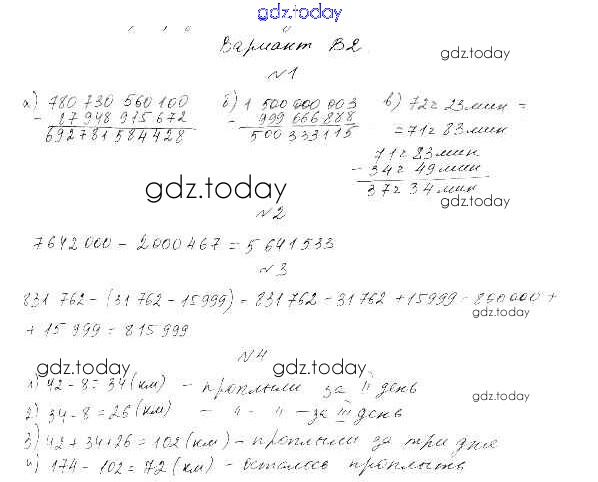 gdz.today
Вариант В2
gdz.today
№1
а) 780 730 560 100
- 87 948 915 672
692 781 584 428
б) 1 500 000 003
- 999 666 888
500 333 115
в) 72г 23 мин =
= 71г 83 мин
71г 83 мин
- 34г 49 мин
37г 34 мин
gdz.today
gdz.today
№2
7642000 - 2000467 = 5641533
№3
831 762 - (31 762 - 15999) = 831 762 - 31 762 + 15999 = 800000 +
+ 15 999 = 815 999
gdz.today
№4
gdz.today
gdz.today
1) 42 - 8 = 34 (км) - проплыли за II день
2) 34 - 8 = 26 (км) - " - " - за III день
gdz.today
3) 42 + 34 + 26 = 102 (км) - проплыли за три дня
4) 174 - 102 = 72 (км) - осталось проплыть
gdz.today